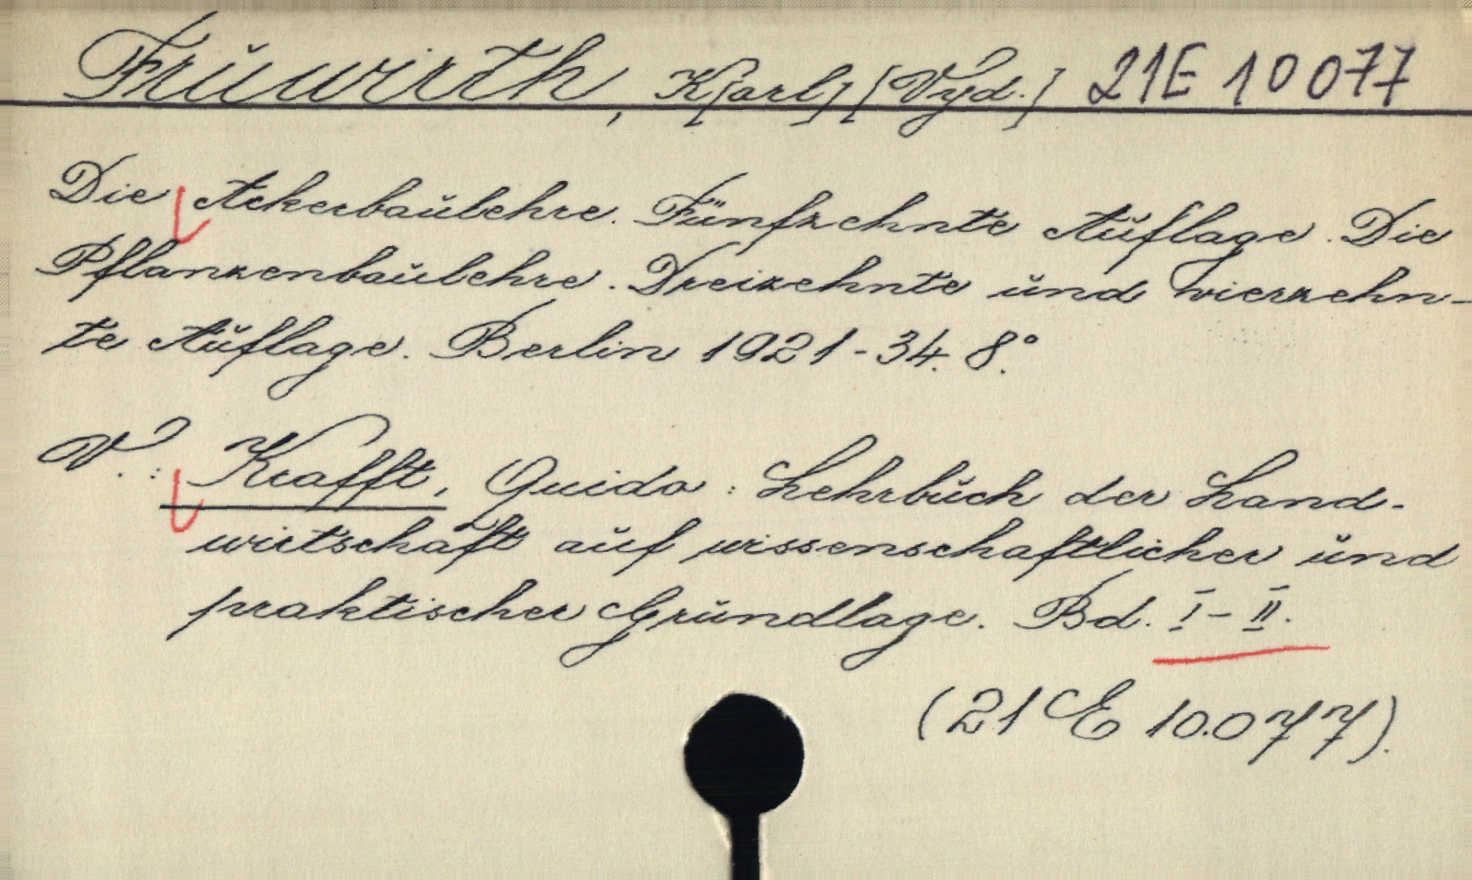 Fruwirth, K[arl] [Vyd.] 21E 10077
Die Ackerbaulehre. Fünfzehnte Auflage. Die
Pflanzenbaulehre. Dreizehnte und vierzehn-
te Auflage. Berlin 1921-34. 8.°
V.: Krafft, Guido: Lehrbuch der Land-
wirtschaft auf wissenschaftlicher und
praktischer Grundlage. Bd. I-II.
(21 E 10.077).